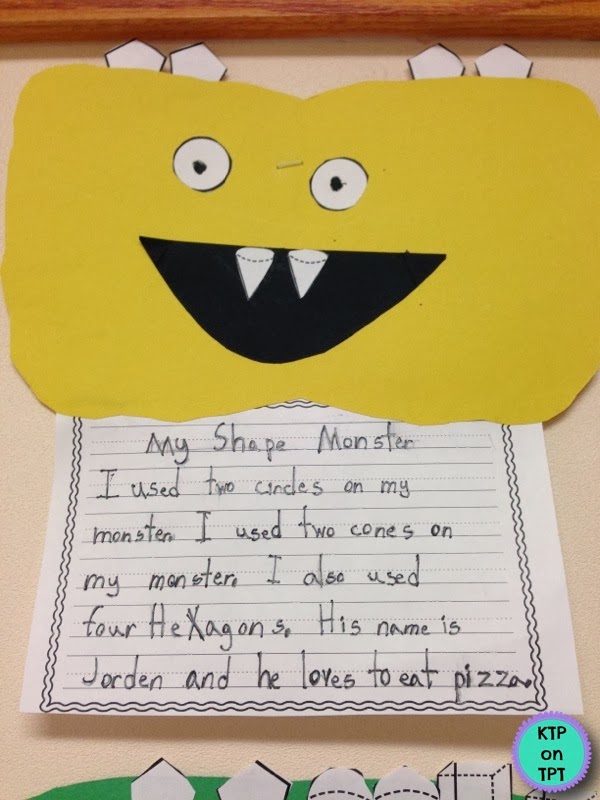 My Shape Monster
I used two circles on my
monster. I used two cones on
my monster. I also used
four HeXagons. His name is
Jorden and he loves to eat pizza.
KTP
on
TPT